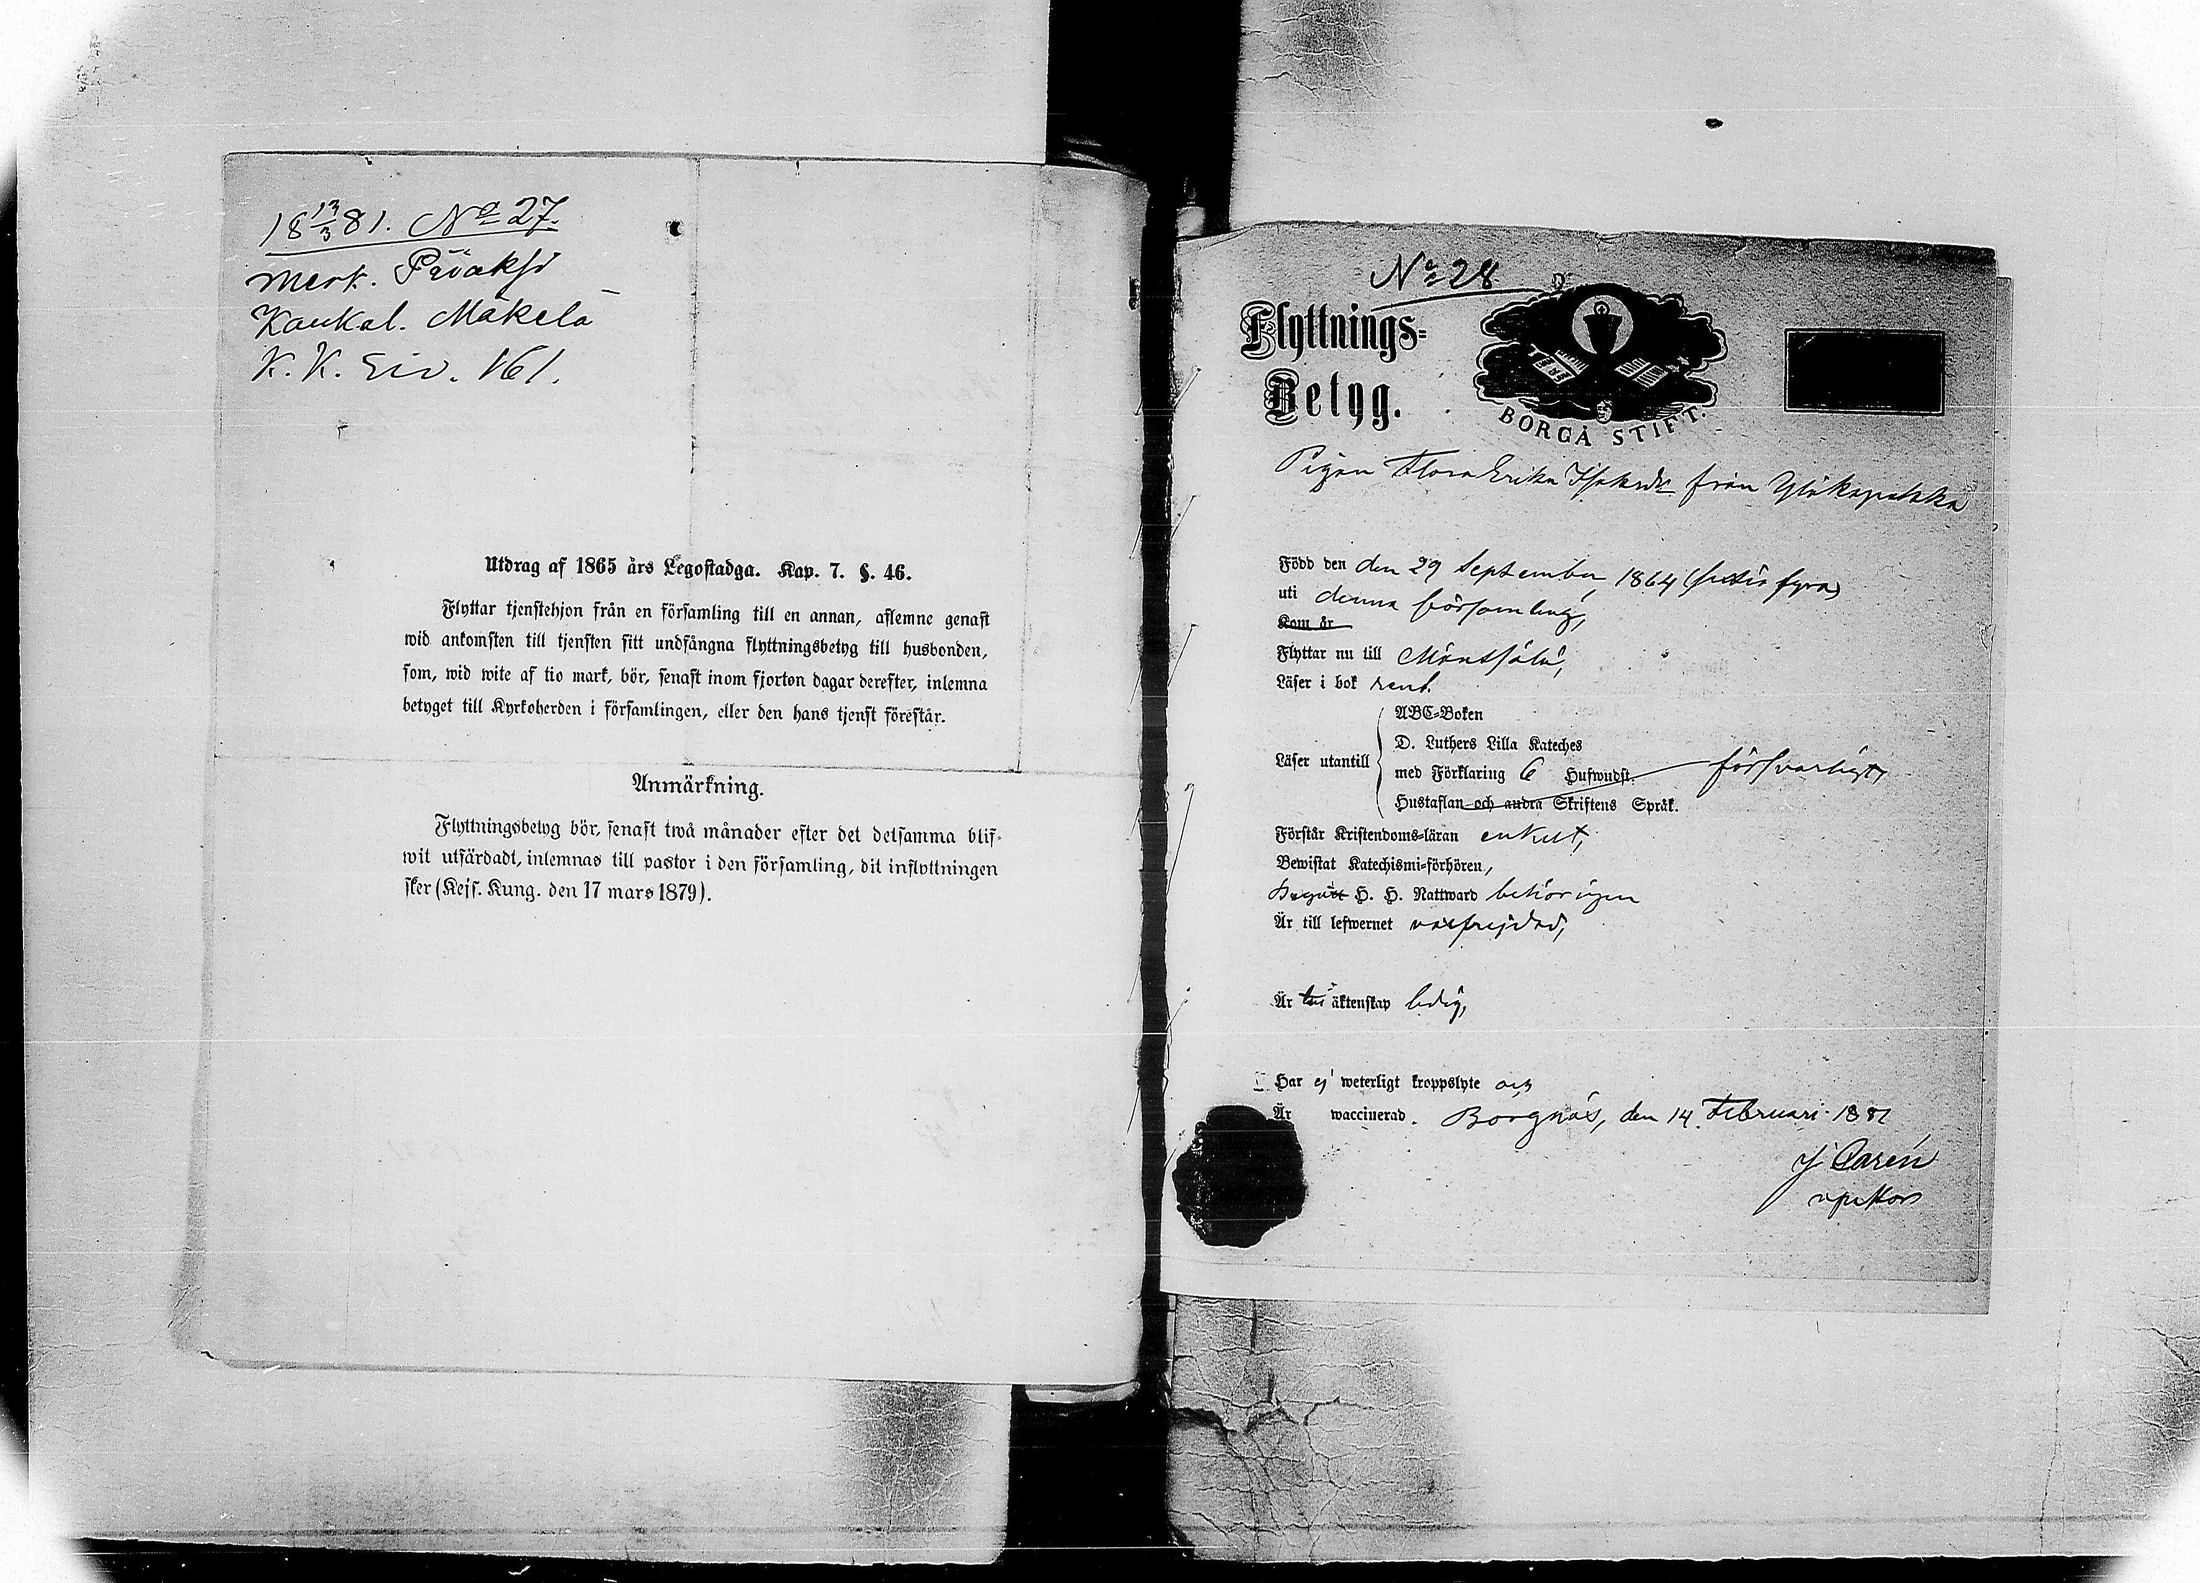 18 13/3 81. No 27.
Merk. Pävaksi
Kaukal. Mäkelä
K. K. Siv. 161.
Utdrag af 1865 års Legostadga. Kap. 7. §. 46.
Flyttar tjenstehjon från en församling till en annan, aflemne genast
wid ankomsten till tjensten sitt undfångna flyttningsbetyg till husbonden,
som, wid wite af tio mark, bör, senast inom fjorton dagar derefter, inlemna
betyget till Kyrkoherden i församlingen, eller den hans tjenst förestår.
Anmärkning.
Flyttningsbetyg bör, senast twå månader efter det detsamma blif-
wit utfärdadt, inlemnas till pastor i den församling, dit inflyttningen
sker (Kejs. Kung. den 17 mars 1879).
No 28
Flyttnings-
Betyg.
BORGÅ STIFT.
Pigan Flora Erika Isaksdr från Ylikapakka
Född den den 29 September 1864 (sextio fyra)
uti denna församling,
Kom år
Flyttar nu till Mäntsälä,
Läser i bok rent.
ABC-Boken
D. Luthers Lilla Kateches
Läser utantill
med Förklaring 6 Hufwudst. försvarligt,
Hustaflan och andra Skriftens Språk.
Förstår Kristendoms-läran enkelt,
Bewistat Katechismi-förhören,
Begått H. H. Nattward behörigen
Är till lefwernet välfrejdad,
Är till äktenskap ledig,
Har ej weterligt kroppslyte och
Är waccinerad. Borgnäs, den 14 Februari 1881
J Carén